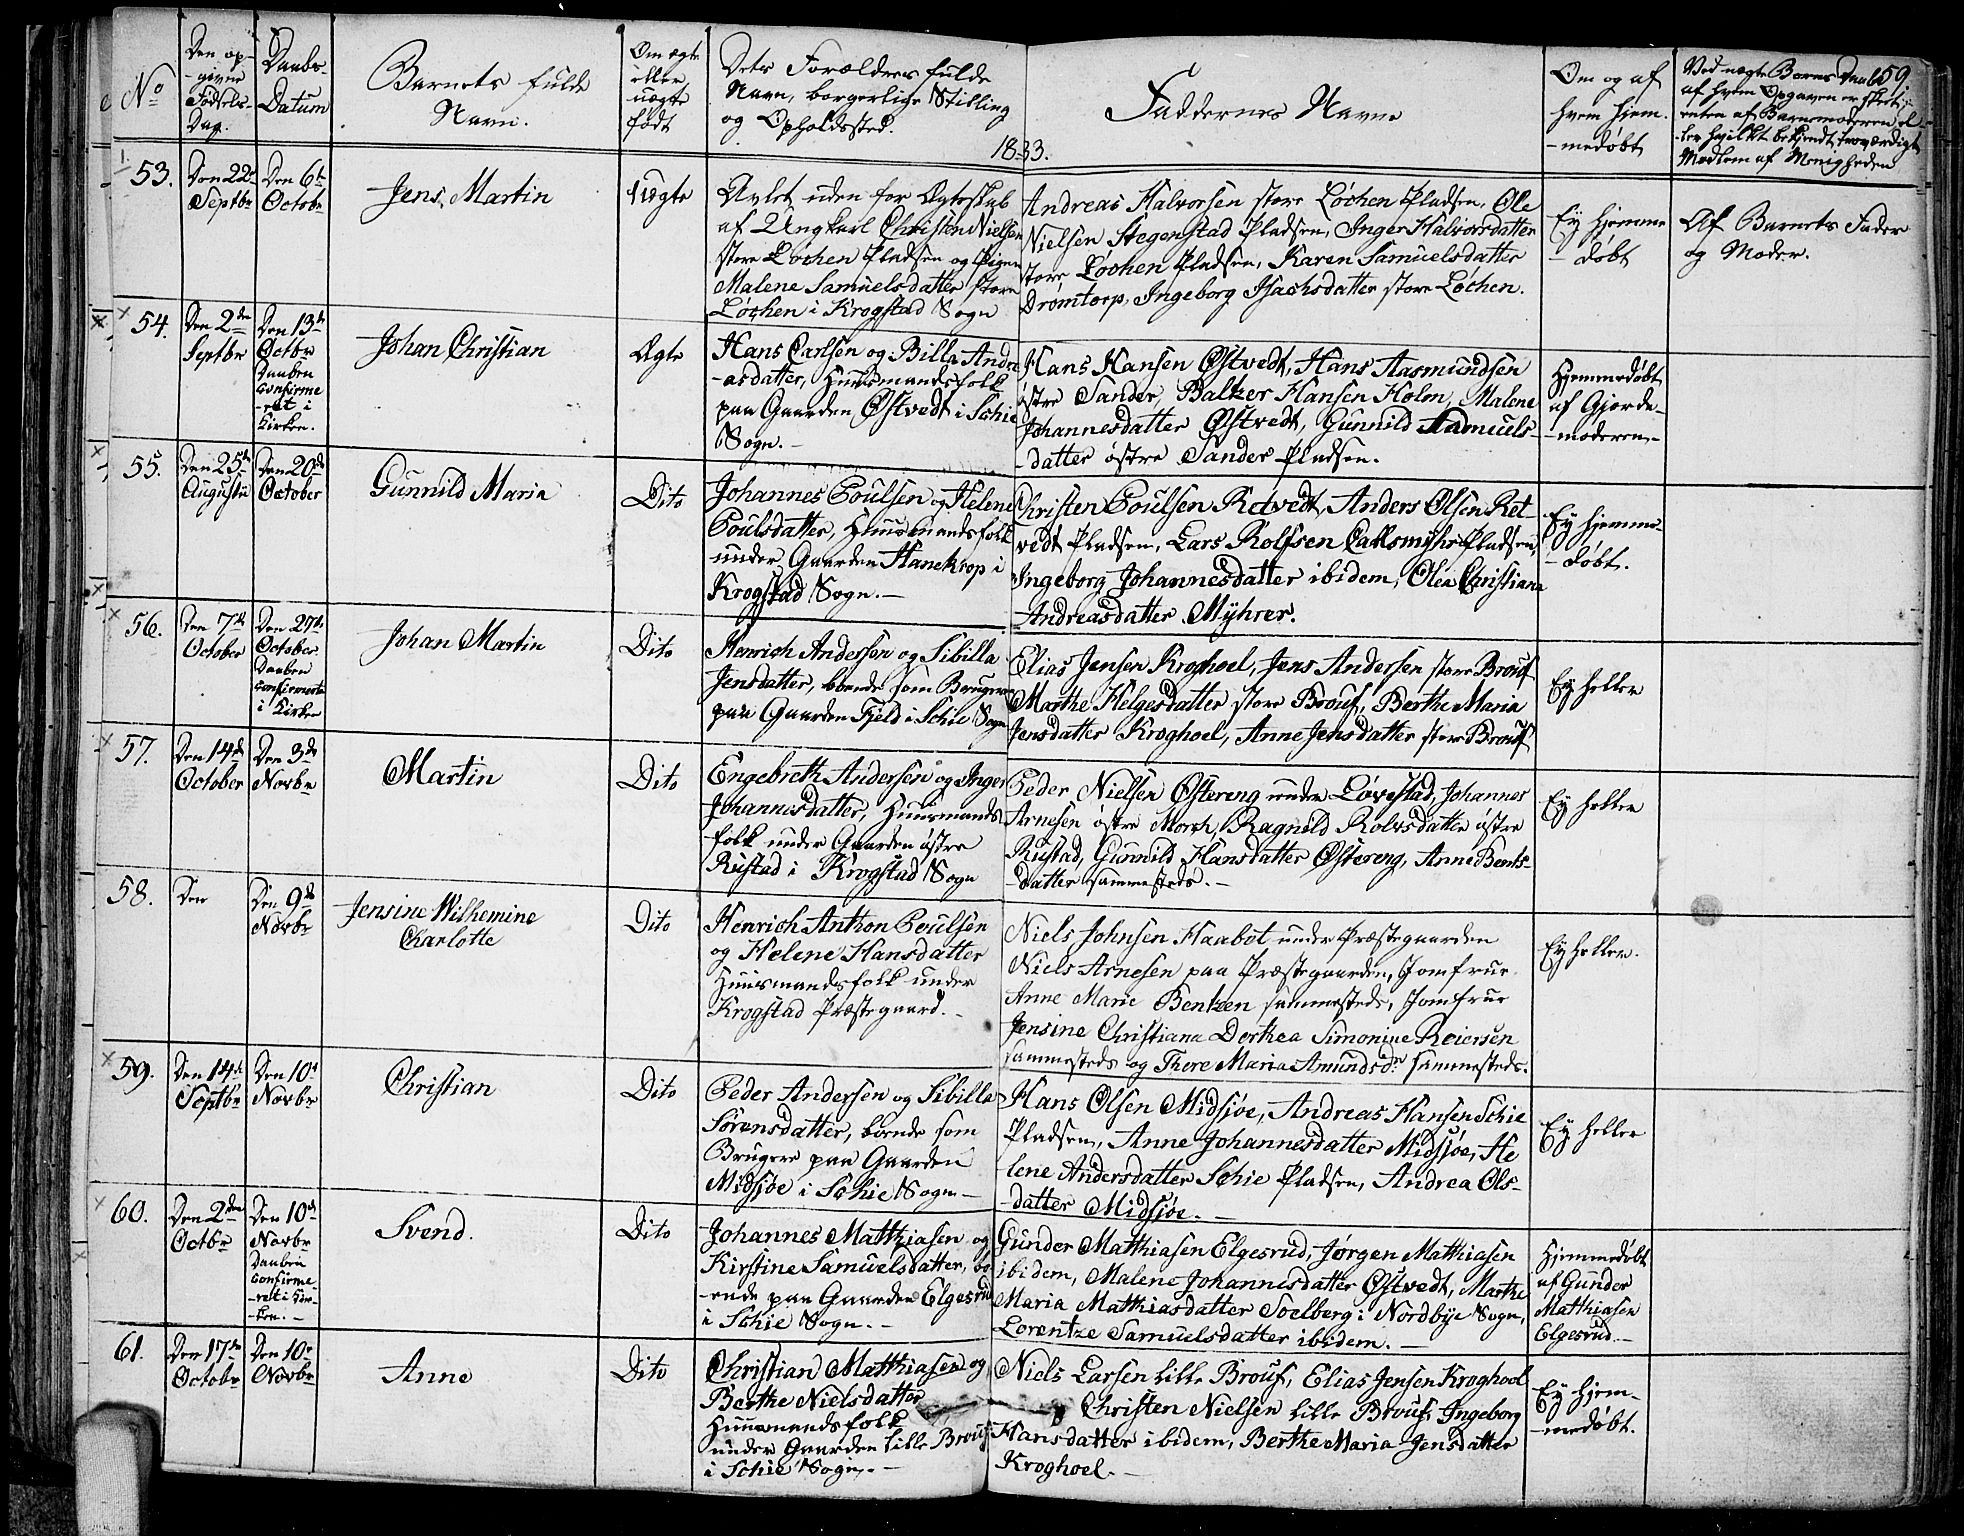 59.
No
Den op-
-givne
Fødsels-
Dag.
Daabs-
Datum
Barnets fulde
Navn.
Om ægte
eller
uægte
født
Dets Forældres fulde
Navn, borgerlige Stilling
og Opholdssted.
Faddernes Navne
Om og af
hvem hjem-
-medøbt
Ved uægte Børns Daab
af hvem Opgaven er skeet,
enten af Barnemoderen el-
ler hvilket bekjendt, troværdigt
Medlem af Menigheden
1833.
53.
Den 22de
Septbr
Den 6te
Octobr
Jens Martin
Uægte
Avlet uden for Ægteskab
af Ungkarl Christen Nielsen
store Løchen Pladsen og Pigen
Malene Samuelsdatter store
Løchen i Krogstad Sogn
Andreas Halvorsen store Løchen Pladsen, Ole
Nielsen Stegenstad Pladsen, Inger Halvorsdatter
store Løchen Pladsen, Karen Samuelsdatter
Drømtorp, Ingeborg Isachsdatter store Løchen.
Ey hjemme
-døbt
Af Barnets Fader
og Moder.
54.
Den 2den
Septbr
Den 13de
Octbr
Daaben
confirme
-ret i
Kirken.
Johan Christian
Ægte
Hans Carlsen og Billa Andre
-asdatter, Huusmandsfolk
paa Gaarden Østvedt i Schie
Sogn.-
Hans Hansen Østvedt, Hans Aasmundsen
østre Sander, Balzer Hansen Holm, Malene
Johannesdatter Østvedt, Gunnild Samuels-
-datter østre Sander Pladsen.
Hjemmedøbt
af Gjorde-
-moderen-
55.
Den 25de
Augusti
Den 20de
October
Gunnild Maria
Dito
Johannes Poulsen og Helene
Poulsdatter, Huusmandsfolk
under Gaarden Hanekrop i
Krogstad Sogn.-
Christen Poulsen Retvedt, Anders Olsen Ret-
vedt Pladsen, Lars Rolfsen Pladsen,
Ingeborg Johannesdatter ibidem, Olea Christiana
Andreasdatter Myhrer.
Ey hjemme-
-døbt.
56.
Den 7de
October
Den 27de
October
Daaben
confirmert
i Kirken
Johan Martin
Dito
Henrich Andersen og Sibilla
Jensdatter, boende som Brugere
paa Gaarden Fjeld i Schie Sogn
Elias Jensen Kroghoel, Jens Andersen store Brouf
Marthe Helgesdatter store Brouf, Berthe Maria
Jensdatter Kroghoel, Anne Jensdatter store Brouf
Ey heller
57.
Den 14de
October
Den 3de
Novbr
Martin
Dito
Engebreth Andersen og Inger
Johannesdatter, Huusmands-
folk under Gaarden østre
Rustad i Krogstad Sogn
Peder Nielsen Østereng under Løvestad, Johannes
Arnesen østre Morch, Ragnild Rolvsdatter østre
Rustad, Gunnild Hansdatter Østereng, Anne Bents-
-datter sammesteds.-
Ey heller
58.
Den
Den 9de
Novbr
Jensine Wilhemine
Charlotte
Dito
Henrich Anthon Poulsen
og Helene Hansdatter
Huusmandsfolk under
Krogstad Præstegaard.-
Niels Johnsen Haabet under Præstegaarden
Niels Arnesen paa Præstegaarden, Jomfrue
Anne Marie Bentzen sammesteds, Jomfrue
Jensine Christiana Dorthea Simonine Reiersen
sammesteds og There Maria Amundsdr sammesteds.
Ey heller.
59.
Den 14de
Septbr
Den 10de
Novbr
Christian
Dito
Peder Andersen og Sibilla
Sørensdatter, boende som
Brugere paa Gaarden
Midsjøe i Schie Sogn-
Hans Olsen Midsjøe, Andreas Hansen Schie
Pladsen, Anne Johannesdatter Midsjøe, He
lene Andersdatter Schie Pladsen, Andrea Ols-
-datter Midsjøe.-
Ey heller
60.
Den 2den
Octbr
Den 10de
Novbr
Daaben
confirme
-ret i Kir-
-ken.-
Svend.
Dito
Johannes Matthiasen og
Kirstine Samuelsdatter, bo
-ende paa Gaarden Elgesrud
i Schie Sogn.-
Gunder Matthiasen Elgesrud, Jørgen Mathiasen
ibidem, Malene Johannesdatter Østvedt, Marthe
Maria Mathiasdatter Soelberg i Nordbye Sogn,
Lorentze Samuelsdatter ibidem.-
Hjemmedøbt
af Gunder
Matthiasen
Elgesrud.-
61.
Den 17de
Octobr
Den 10de
Novbr
Anne
Dito
Christian Matthiasen og
Berthe Nielsdatter
Huusmandsfolk
under Gaarden lille Brouf
i Schie Sogn.-
Niels Larsen lille Brouf, Elias Jensen Kroghoel
Christen Nielsen lille Brouf, Ingeborg
Hansdatter ibidem, Berthe Maria Jensdatter
Kroghoel.-
Ey hjem-
-medøbt.